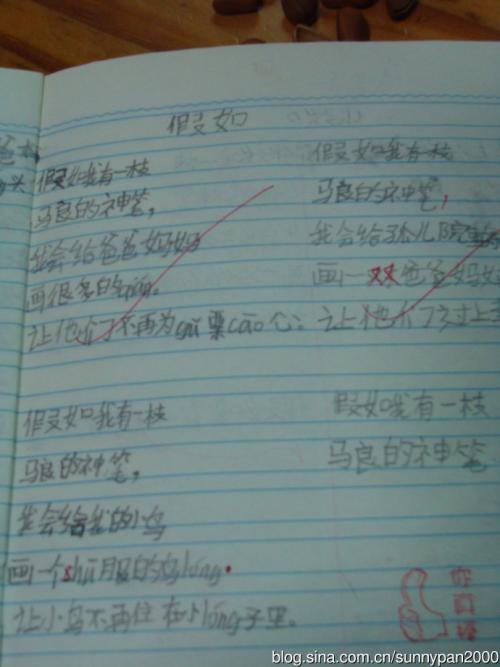 假如
假如我有一枝
马良的神笔,
我会给爸爸妈妈
画很多的qián。
让他们不再为gǔ票cāo心。
假如我有一枝
马良的神笔,
我会给孤儿院
画一双爸爸妈
让他们过上
假如我有一枝
马良的神笔,
我会给我的小鸟
画一个shū服的鸟lóng。
让小鸟不再住在小lóng子里。
假如我有一枝
马良的神笔
blog.sina.com.cn/sunnypan2000